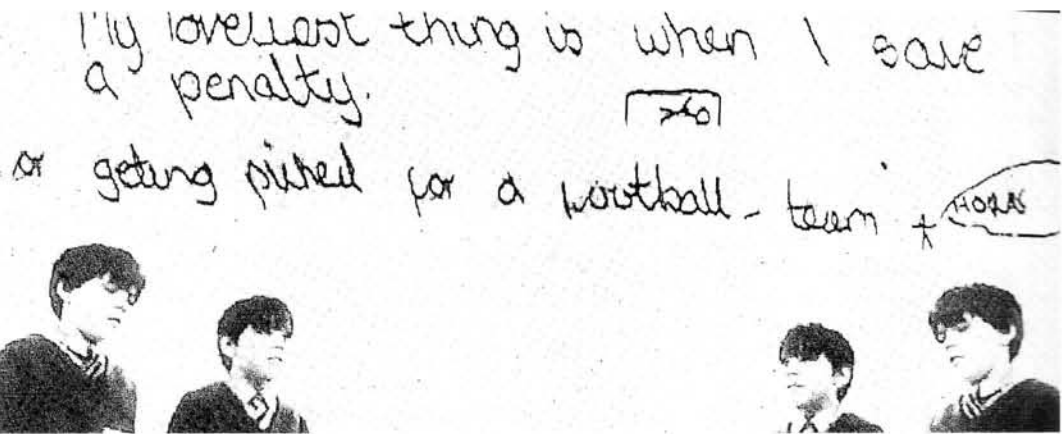 My loveliest thing is when I save
a penalty.
or geting picked for a football-team
HORN